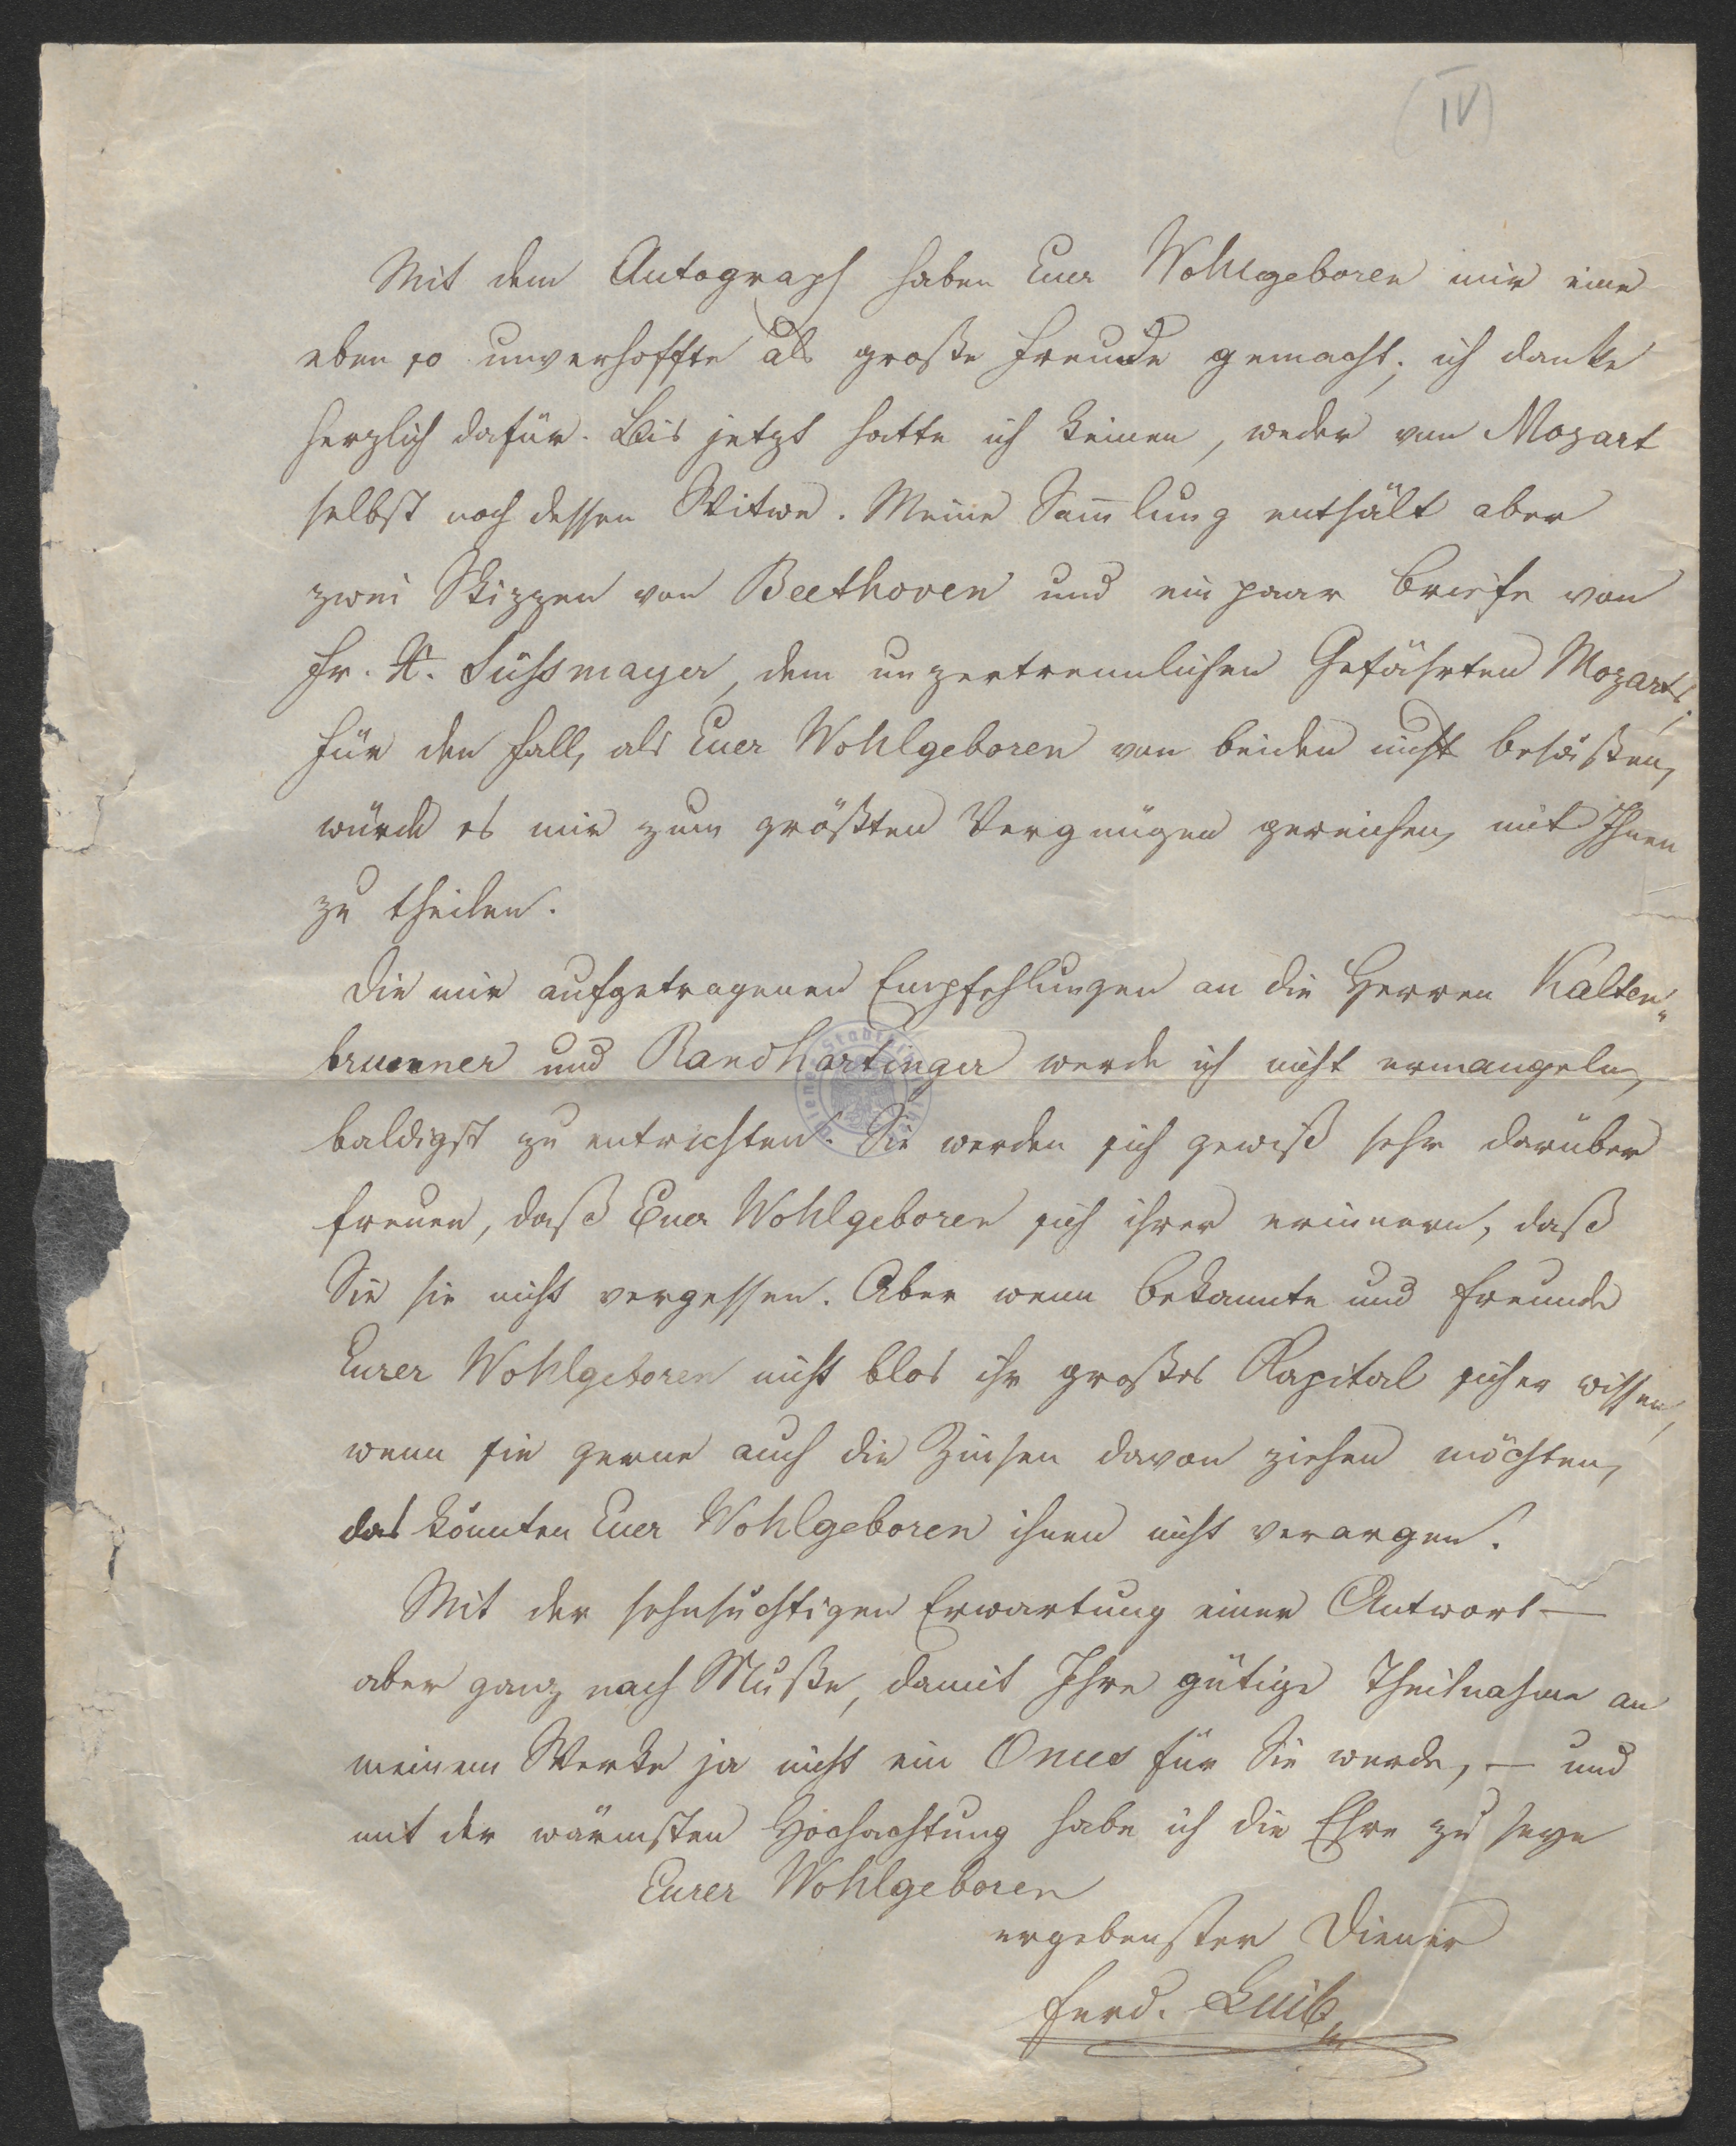 (IV)
Mit dem Autograph haben Euer Wohlgeboren mir eine
eben so unverhoffte als große Freude gemacht; ich danke
herzlich dafür. Bis jetzt hatte ich keinen, weder von Mozart
selbst noch dessen Witwe. Meine Sam̅lung enthält aber
zwei Skizzen von Beethoven und ein paar Briefe von
Fr. X. Süssmayer, dem unzertrennlichen Gefährten Mozarts.
Für den Fall, als Euer Wohlgeboren von beiden nicht besäßen,
würde es mir zum größten Vergnügen gereichen, mit Ihnen
zu theilen.
Die mir aufgetragenen Empfehlungen an die Herren Kalten„
brunner und Randhartinger werde ich nicht ermangeln,
baldigst zu entrichten. Sie werden sich gewiß sehr darüber
freuen, daß Euer Wohlgeboren sich ihrer erinnern, daß
Sie sie nicht vergessen. Aber wenn Bekannte und Freunde
Eurer Wohlgeboren nicht blos ihr großes Kapital sicher wissen,
wenn sie gerne auch die Zinsen davon ziehen möchten,
das könnten Euer Wohlgeboren ihnen nicht verargen.
Mit der sehnsüchtigen Erwartung einer Antwort —
aber ganz nach Muße, damit Ihre gütige Theilnahme an
meinem Werke ja nicht ein Onus für Sie werde, — und
mit der wärmsten Hochachtung habe ich die Ehre zu seyn
Eurer Wohlgeboren
ergebenster Diener
Ferd. Luib